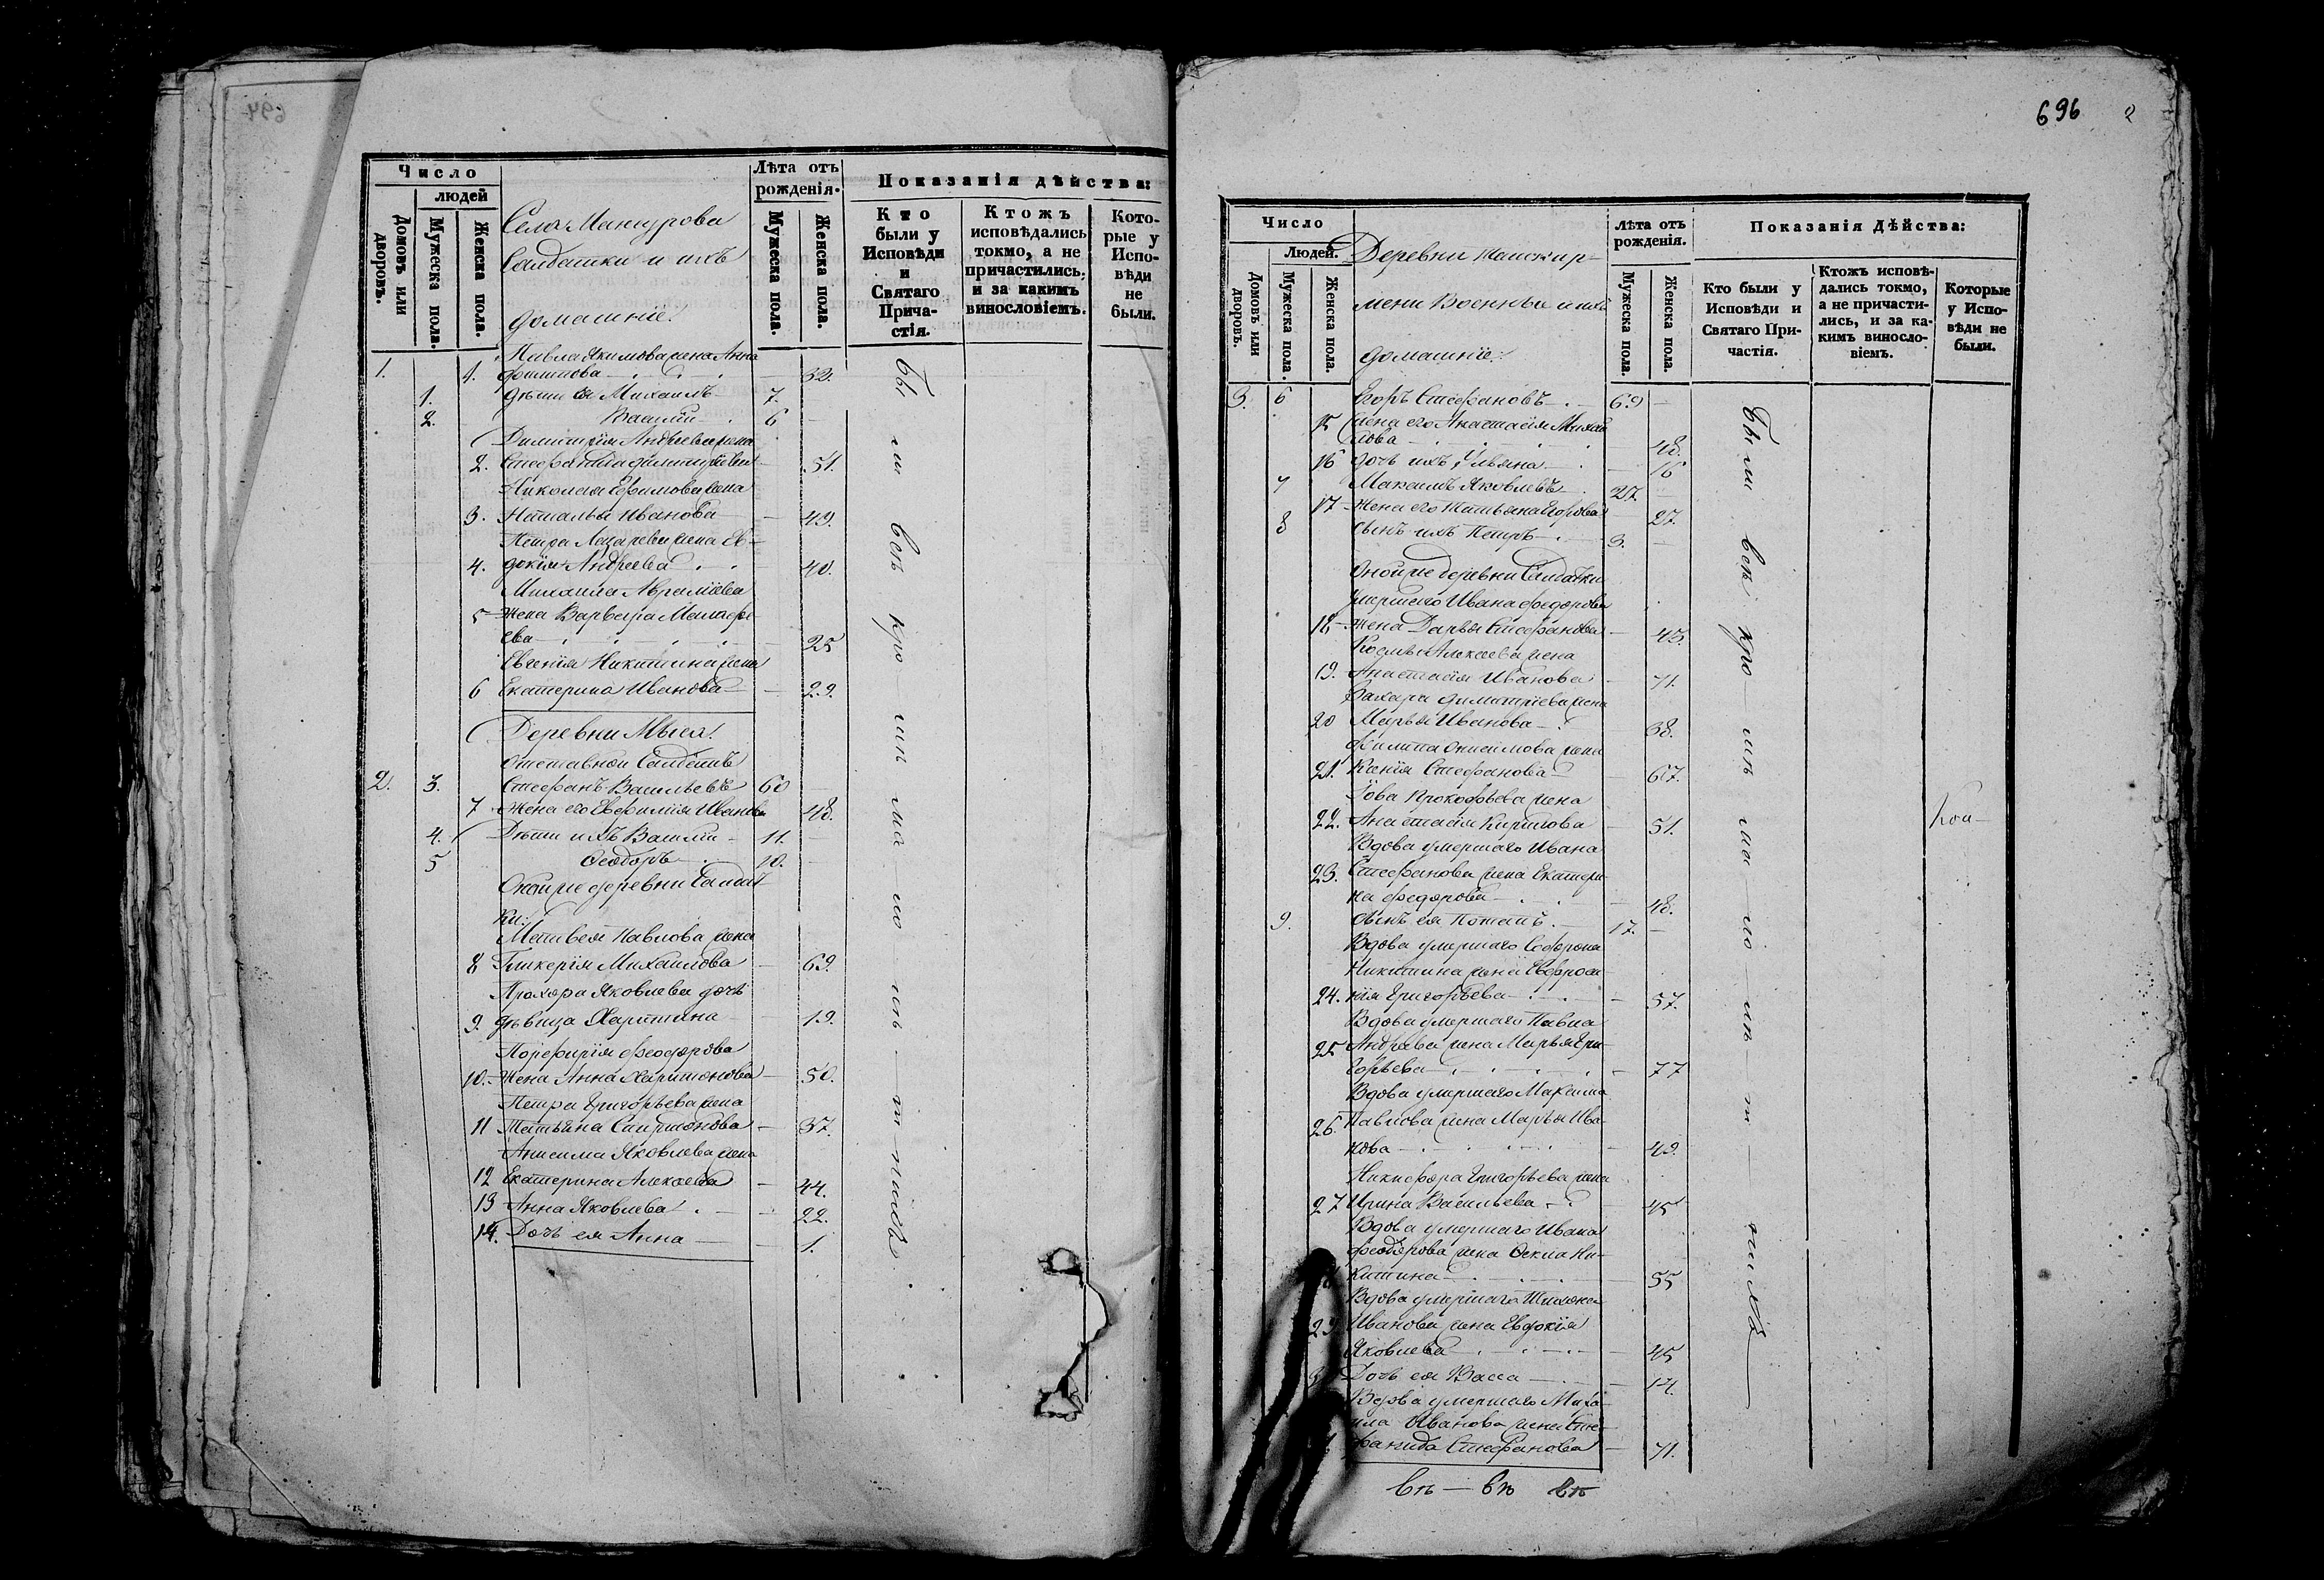 Число
людей
Домовъ или дворовъ.
Мужеска пола.
Женска пола.
Села Мансурова
Салдатки и ихъ
домашніе.
Лѣта отъ
рожденія.
Мужеска пола.
Женска пола.
Показанія дѣйства:
Кто
были у
Исповѣди
и
Святаго
Прича-
стія.
Ктожъ
исповѣдались
токмо, а не
причастились,
и за какимъ
винословіемъ.
Кото-
рые у
Испо-
вѣди
не
были.
Павла Якимова жена Анна
1. 1. Филипова 32.
1. дѣти ея Михаилъ 7.
2. Василій 6
Димитрія Андреева жена
2. Стефанида Димитріева 51.
Николая Ефимова жена
3. Наталья Иванова 49.
Петра Лазарева жена Ев-
4. докія Андреева 40.
Михаила Аврамова
5 Жена Варвара Матфе-
ева 25
Евгенія Никитина жена
6 Екатерина Иванова 29.
Деревни Мыса.
Отставной Салдатъ
2. 3. Стефанъ Васильевъ 60
7 Жена его Евфимія Иванова 48.
4. Дѣти ихъ Василій 11.
5 Ѳеодоръ 10.
Оной же деревни Салдат-
ки.
Матвея Павлова жена
8 Гликерія Михаилова 69.
Прохора Яковлева дочь
9. дѣвица Харитина 19.
Порфирія Феодорова
10. Жена Анна Харитонова 50.
Петра Григорьева жена
11 Татьяна Спиридонова 37.
Анисима Яковлева жена
12 Екатерина Алексеева 44.
13 Анна Яковлева 22.
14. Дочь ея Анна 1.
Бы ли
696
Число
Людей.
Домовъ или дворовъ.
Мужеска пола.
Женска пола.
Деревни
домашніе.
Лѣта отъ
рожденія.
Мужеска пола.
Женска пола.
Показанія Дѣйства:
Кто были у
Исповѣди и
Святаго При-
частія.
Ктожъ исповѣ-
дались токмо,
а не причасти-
лись, и за ка-
кимъ виносло-
віемъ.
Которые
у Испо-
вѣди не
были.
3. 6 Егоръ Стефановъ 69
15 жена его Анастасія Михай
лова 48.
16 дочь ихъ Ульяна 16
7 Максимъ Яковлевъ 27.
17 Жена его Татьяна Егорова 27.
8 сынъ ихъ Петръ 3.
Оной же деревни Салдатки
умершаго Ивана Федорова
18 Жена Дарья Стефанова 43.
Космы Алексеева жена
19. Анастасія Иванова 71.
Захара Димитріева жена
20 Марья Иванова 38.
Филипа Онисимова жена
21. Ксенія Стефанова 67.
Іова Прокофьева жена
22. Анастасія Кирилова 51.
Вдова умершаго Ивана
23. Стефанова жена Екатери-
на Федорова 48.
9. сынъ ея Потапъ 17.
Вдова умершаго Софрона
Никитина жена Евфроси-
24. нія Григорьева 57.
Вдова умершаго Павла
25 Андреева жена Марья Гри-
горьева 77
Вдова умершаго Максима
26. Павлова жена Марья Ива-
нова 49.
Никифора Григорьева жена
27 Ирина Васильева 45
Вдова умершаго Ивана
Феодорова жена Ѳекла Ни-
китина 55
Вдова умершаго Тихона
29. Иванова жена Евдокія
Яковлева 45
Дочь ея Васса 14.
Вдова умершаго Миха-
ила Иванова жена Сте-
фанида Стефанова 71.
Бы ли